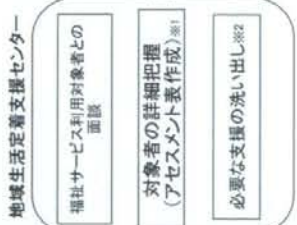 地域生活定着支援センター
福祉サービス利用対象者との
面談
対象者の詳細把握
(アセスメント表作成)※1
必要な支援の洗い出し※2